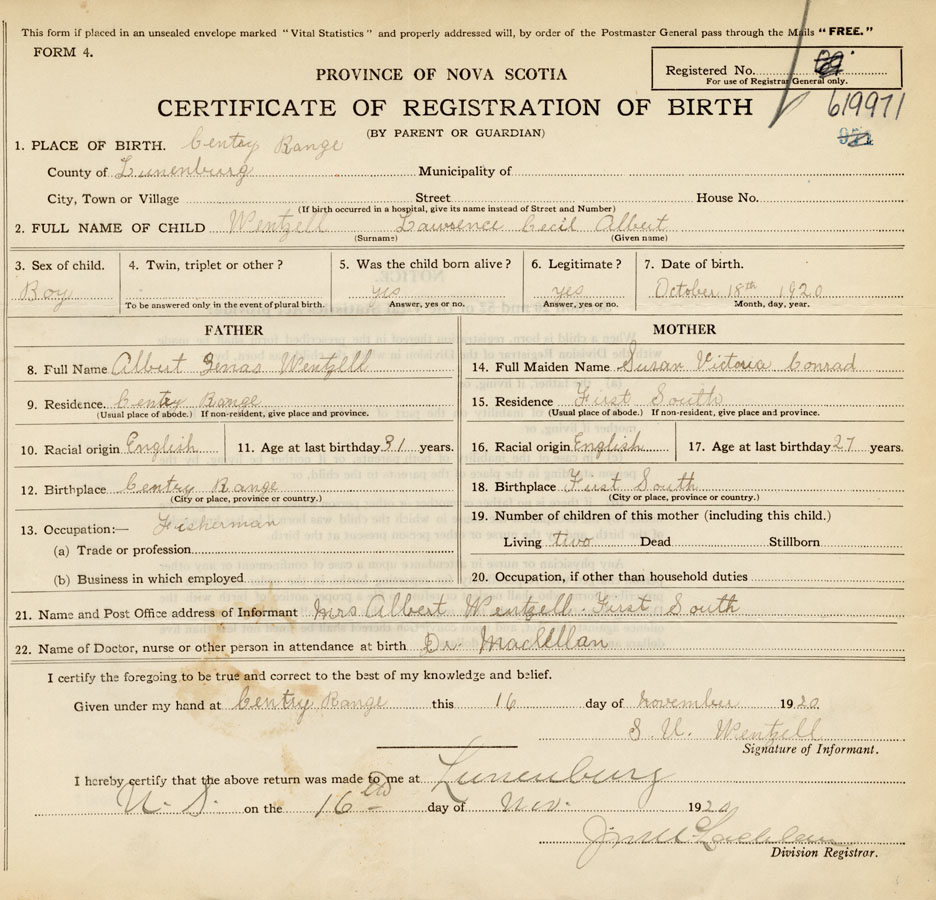 This form if placed in an unsealed envelope marked "Vital Statistics" and properly addressed will, by order of the Postmaster General pass through the Mails "FREE."
FORM 4.
Registered No.
For use of Registrar General only.
PROVINCE OF NOVA SCOTIA
CERTIFICATE OF REGISTRATION OF BIRTH
619971
(BY PARENT OR GUARDIAN)
1. PLACE OF BIRTH. Centry Range
County of Lunenburg Municipality of
City, Town or Village Street House No.
(If birth occurred in a hospital, give its name instead of Street and Number)
2. FULL NAME OF CHILD Wentzell Lawrence Cecil Albert
(Surname) (Given name)
3. Sex of child. 4. Twin, triplet or other? 5. Was the child born alive? 6. Legitimate? 7. Date of birth.
Boy yes yes October 18th 1920
To be answered only in the event of plural birth. Answer, yes or no. Answer, yes or no. Month, day, year.
FATHER
8. Full Name Albert Wentzell
9. Residence. Centry Range
(Usual place of abode.) If non-resident, give place and province.
10. Racial origin English 11. Age at last birthday 31 years.
12. Birthplace Centry Range
(City or place, province or country.)
13. Occupation:— Fisherman
(a) Trade or profession.
(b) Business in which employed
MOTHER
14. Full Maiden Name Susan Victoria Conrad
15. Residence First South
(Usual place of abode.) If non-resident, give place and province.
16. Racial origin English 17. Age at last birthday 27 years.
18. Birthplace First South
(City or place, province or country.)
19. Number of children of this mother (including this child.)
Living two Dead Stillborn
20. Occupation, if other than household duties
21. Name and Post Office address of Informant Mrs Albert Wentzell. First South
22. Name of Doctor, nurse or other person in attendance at birth Dr. Maclellan
I certify the foregoing to be true and correct to the best of my knowledge and belief.
Given under my hand at Centry Range this 16 day of November 1920
S. V. Wentzell
Signature of Informant.
I hereby certify that the above return was made to me at Lunenburg
N. S. on the 16 day of Nov. 1920
Division Registrar.